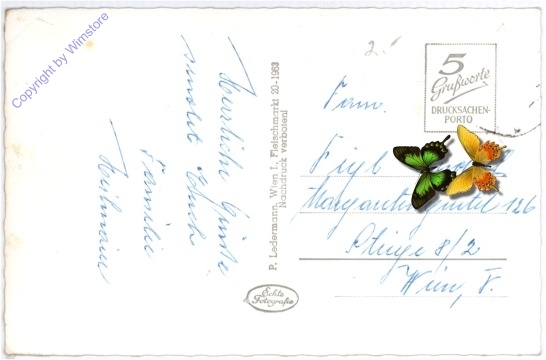 Copyright by Wimstore
Herzliche Grüße
sendet Euch
Familie
P. Ledermann, Wien I., Fleischmarkt 20-1963
Nachdruck verboten!
Echte
Fotografie
5
Grußworte
DRUCKSACHEN-
PORTO
Fam.
Margaretengürtel 126
Stiege 8/2
Wien, V.